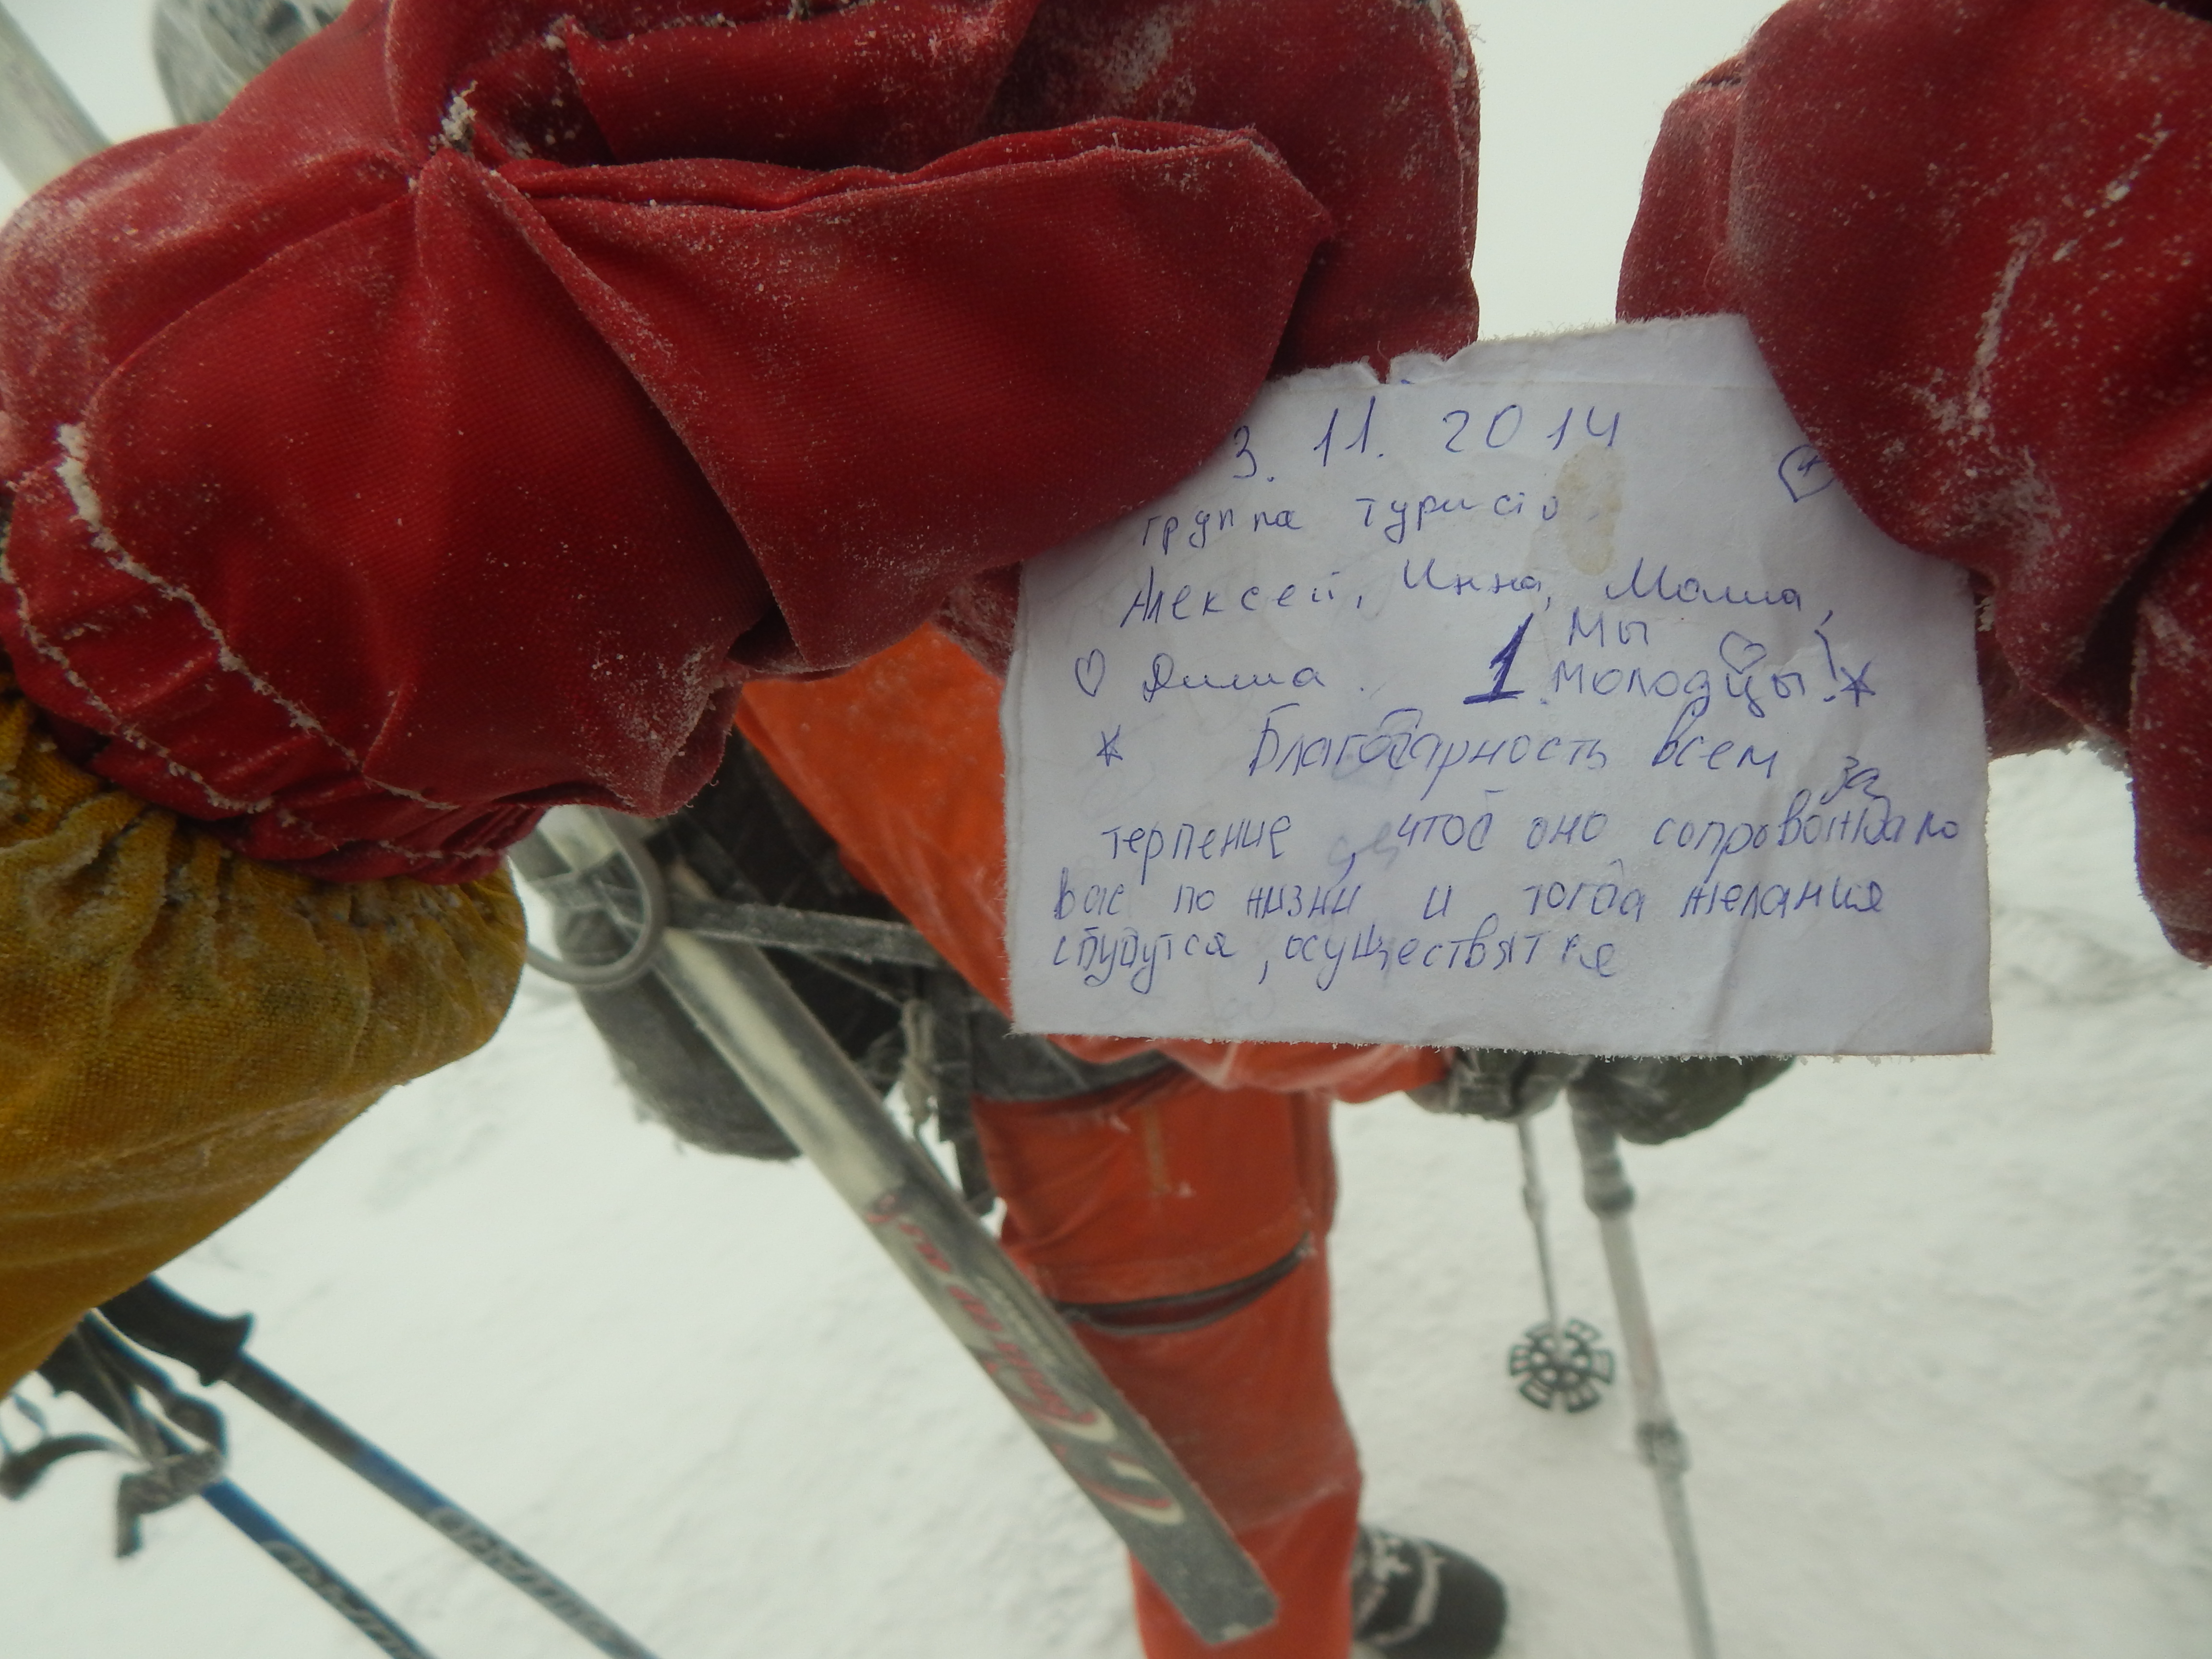 3. 11. 2014
группа туристо
Алексей, Инна, Маша,
Дима. 1 Мы
молодцы!
Благодарность всем за
терпение, чтоб оно сопровождало
вас по жизни и тогда желания
сбудутся, осуществятся